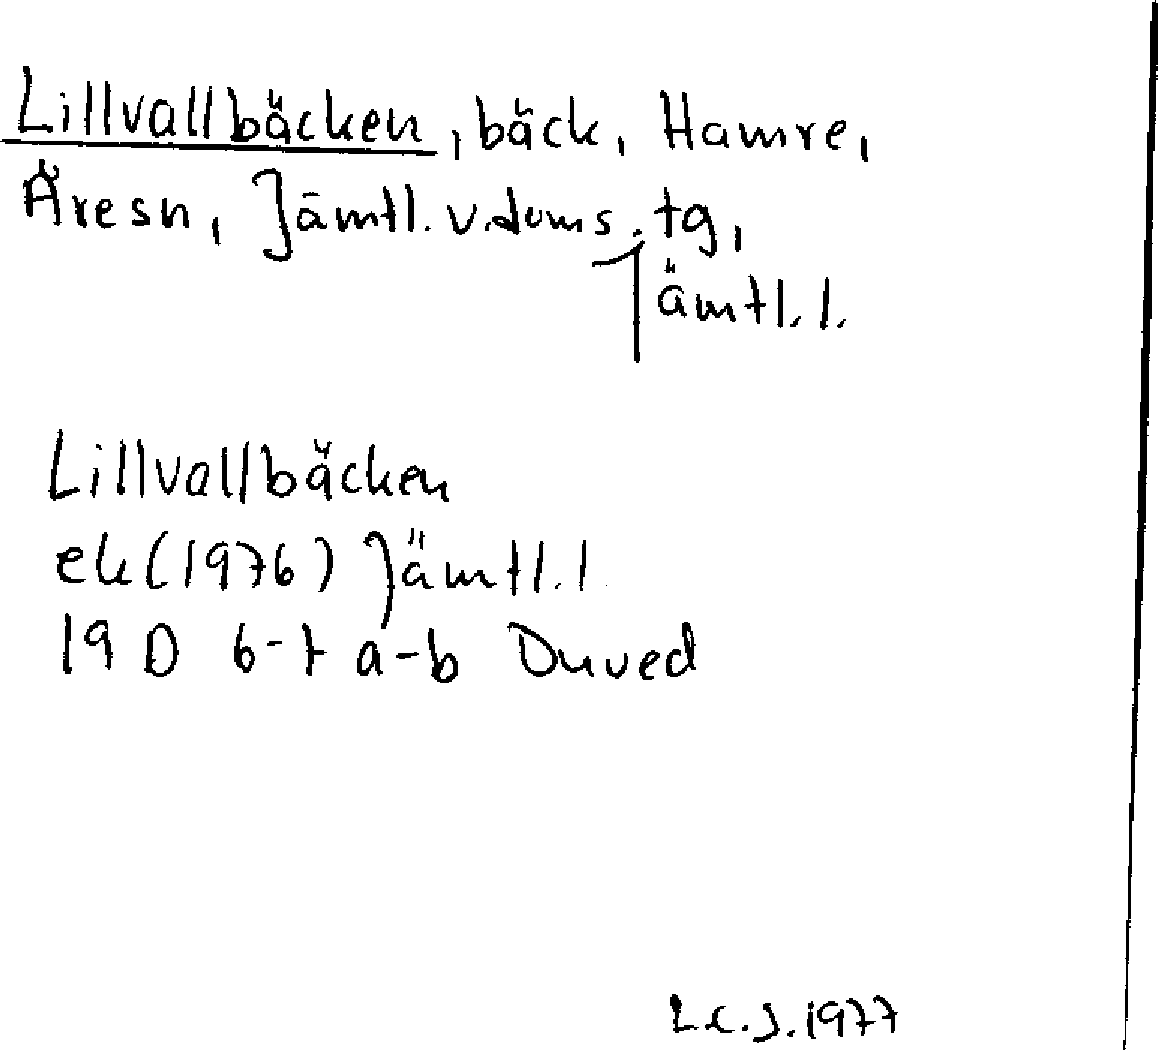 Lillvallbäcken, bäck, Hamre,
Åresn, Jämtl. v. doms. tg,
Jämtl. l.
Lillvallbäcken
ek (1976) Jämtl. l
19 D 6-7 a-b Duved
L.C.J. 1977